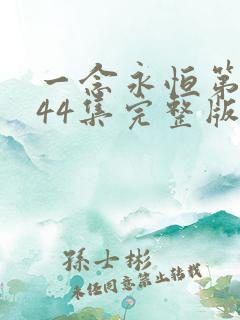 一念永恒第
44集完整版
孫士彬
未经同意禁止转载